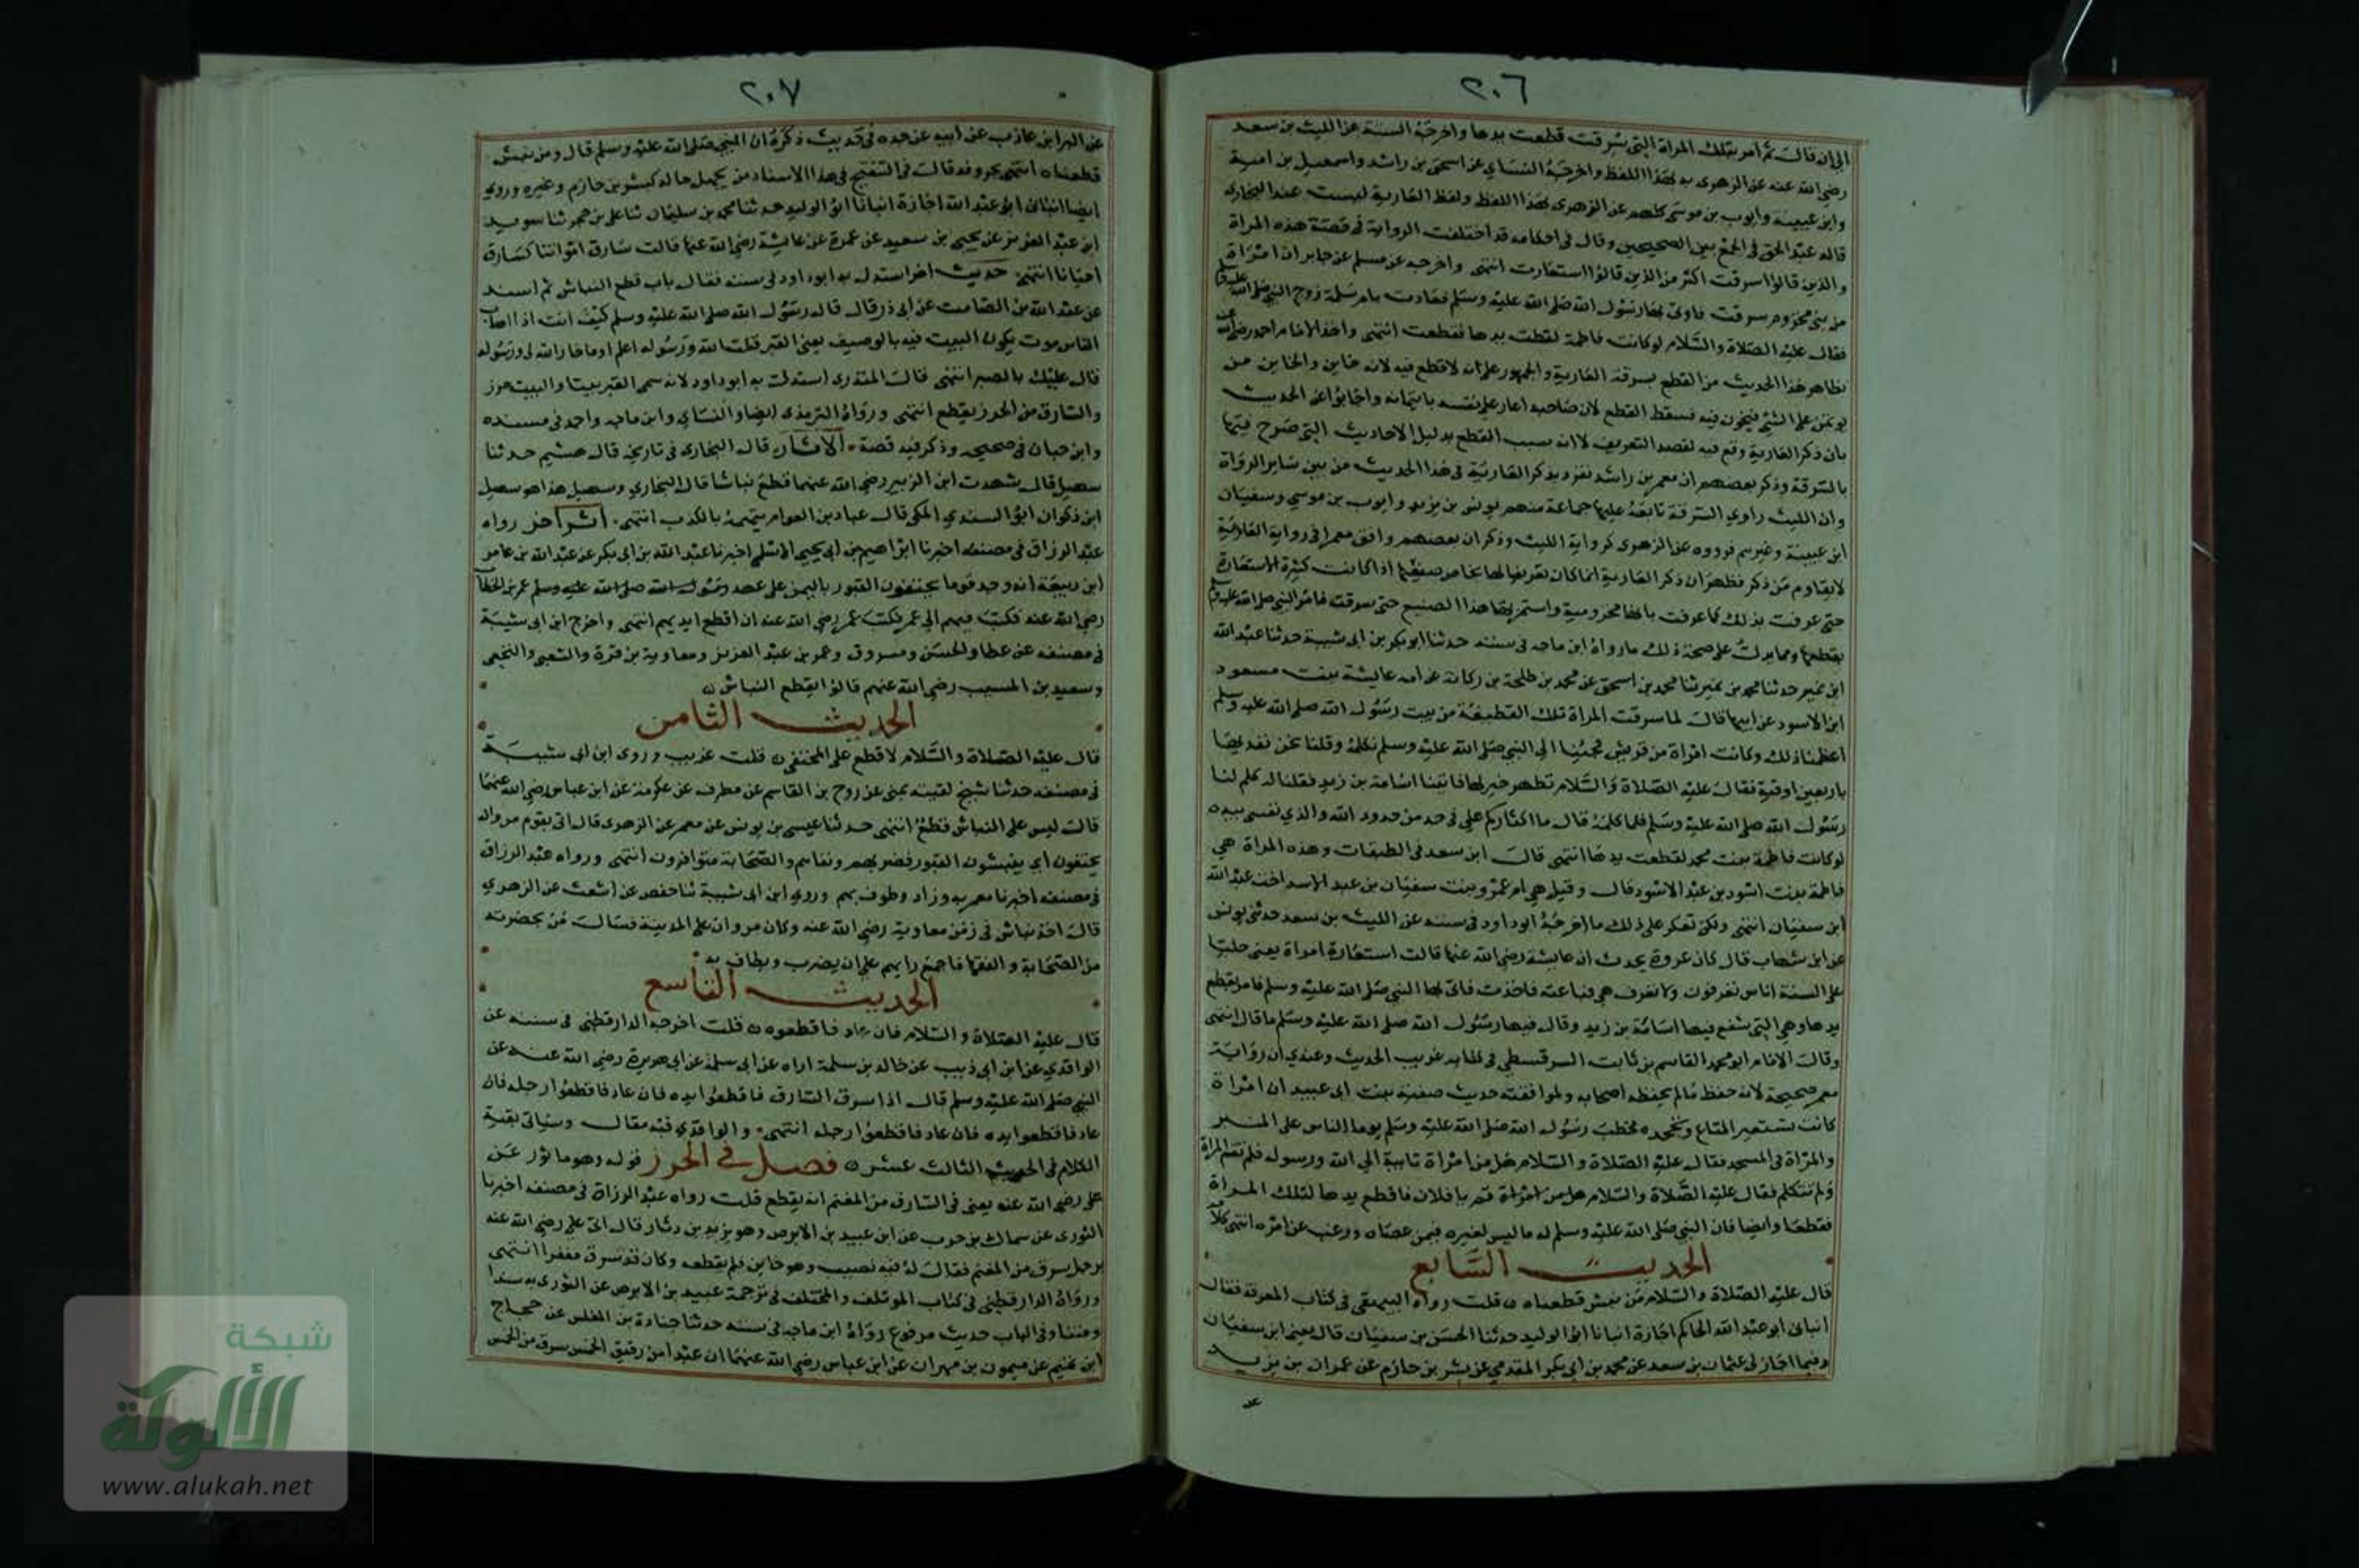 ٢٠٦
الى ان قال ثم امر بتلك المراة التى سرقت قطعت يدها واخرجه الستة عن الليث بن سعد
رضي الله عنه عن الزهرى به بهذا اللفظ واخرجه النساي عن اسحق بن راشد واسمعيل بن امية
وابن عيينة وايوب بن موسى كلهم عن الزهرى بهذا اللفظ ولفظ العارية ليست عند البخارى
قاله عبد الحق فى الجمع بين الصحيحين وقال فى احكامه قد اختلفت الرواية فى قصة هذه المراة
والذين قالوا سرقت اكثر من الذين قالوا استعارت انتهى واخرجه مسلم عن جابر ان امراة
من بنى مخزوم سرقت فاوتى بها رسول الله صلى الله عليه وسلم فعادت بام سلمة زوج النبي صلى الله عليه وسلم
فقال عليه الصلاة والسلام لو كانت فاطمة لقطعت يدها فقطعت انتهى واخذ الامام احمد رضي الله عنه
بظاهر هذا الحديث من القطع بسرقة العارية والجمهور على انه لا قطع فيه لانه خاين والخاين من
يوتمن على الشئ فيخون فيه فسقط القطع لان صاحبه اعار على نفسه بايتمانه واجابوا عن الحديث
بان ذكر العارية وقع فيه لقصد التعريف لا انه سبب القطع بدليل الاحاديث التى صرح فيها
بالسرقة وذكر بعضهم ان معمر بن راشد تفرد بذكر العارية فى هذا الحديث من بين ساير الرواة
وان الليث راوي السرقة تابعه عليها جماعة منهم يونس بن يزيد وايوب بن موسى وسفيان
ابن عيينة وغيرهم فرووه عن الزهرى كرواية الليث وذكر ان بعضهم وافق معمرا فى رواية العارية
لا يقاوم من ذكر فظهر ان ذكر العارية انما كان تعريفا لها بخاص صفتها اذ اكانت كثيرة الاستعارة
حتى عرفت بذلك كما عرفت بانها مخزومية واستمر بها هذا الصنيع حتى سرقت فامر النبي صلى الله عليه وسلم
بقطعها ومما يدل على صحة ذلك ما رواه ابن ماجه فى سننه حدثنا ابو بكر بن ابى شيبة حدثنا عبد الله
ابن نمير حدثنا محمد بن نمير ثنا محمد بن اسحق عن محمد بن طلحة بن ركانة عن امه عايشة بنت مسعود
ابن الاسود عن ابيها قال لما سرقت المراة تلك القطيفة من بيت رسول الله صلى الله عليه وسلم
اعظمنا ذلك وكانت امراة من قريش فجئنا الى النبي صلى الله عليه وسلم نكلمه وقلنا نحن نفديها
باربعين اوقية فقال عليه الصلاة والسلام تطهر خير لها فاتينا اسامة بن زيد فقلنا له كلم لنا
رسول الله صلى الله عليه وسلم فلما كلمه قال ما اكثاركم علي فى حد من حدود الله والذي نفسى بيده
لو كانت فاطمة بنت محمد لقطعت يدها انتهى قال ابن سعد فى الطبقات وهذه المراة هي
فاطمة بنت اسود بن عبد الاسود قال وقيل هي ام عمرو بنت سفيان بن عبد الاسد اخت عبد الله
ابن سفيان انتهى ولكن تعكر على ذلك ما اخرجه ابو داود فى سننه عن الليث بن سعد حدثنى يونس
عن ابن شهاب قال كان عروة يحدث ان عايشة رضي الله عنها قالت استعارة امراة يعنى حليا
على السنة اناس تعرفون ولا تعرف هي فباعته فاخذت فاتى بها النبي صلى الله عليه وسلم فامر بقطع
يدها وهى التى شفع فيها اسامة بن زيد وقال فيها رسول الله صلى الله عليه وسلم ما قال انتهى
وقال الامام ابو محمد القاسم بن ثابت السرقسطى فى كتابه غريب الحديث وعندي ان رواية
معمر صحيحة لانه حفظ مالم يحفظه اصحابه ولموافقته حديث صفية بنت ابى عبيد ان امراة
كانت تستعير المتاع وتجحده فخطب رسول الله صلى الله عليه وسلم يوما الناس على المنبر
والمراة فى المسجد فقال عليه الصلاة والسلام هل من امراة تايبة الى الله ورسوله فلم تقم المراة
ولم تتكلم فقال عليه الصلاة والسلام هل من امراة قم يا فلان فاقطع يدها لتلك المراة
فقطعها وايضا فان النبي صلى الله عليه وسلم له ما ليس لغيره فيمن عصاه ورغب عن امره انتهى
الحديث السابع
قال عليه الصلاة والسلام من نبش قطعناه قلت رواه البيهقى فى كتاب المعرفة فقال
انبانى ابو عبد الله الحاكم اجازة انبانا ابو الوليد حدثنا الحسن بن سفيان قال يعنى ابن سفيان
وفيما اجاز لى عثمان بن سعد عن محمد بن ابى بكر المقدمي عن بشر بن حازم عن عمران بن يزيد
٢٠٧
عن البرا ابن عازب عن ابيه عن جده فى حديث ذكره ان النبي صلى الله عليه وسلم قال ومن نبش
قطعناه انتهى بحروفه قال فى التنقيح فى هذا الاسناد من يجهل حاله كبشر بن حازم وغيره وروي
ايضا انبانى ابو عبد الله اجازة انبانا ابو الوليد حدثنا محمد بن سليمان ثنا على بن حجر ثنا سويد
ابن عبد العزيز عن يحيى بن سعيد عن عمرة عن عايشة رضي الله عنها قالت سارق امواتنا كسارق
احيانا انتهى حديث اخر استدل به ابو داود فى سننه فقال باب قطع النباش ثم اسند
عن عبد الله بن الصامت عن ابى ذر قال قال رسول الله صلى الله عليه وسلم كيف انت اذا اصاب
الناس موت يكون البيت فيه بالوصيف يعنى القبر قلت الله ورسوله اعلم او ما خار الله لى ورسوله
قال عليك بالصبر انتهى قال المنذرى استدل به ابو داود لانه سمى القبر بيتا والبيت حرز
والسارق من الحرز يقطع انتهى ورواه الترمذى ايضا والنساي وابن ماجه واحمد فى مسنده
وابن حبان فى صحيحه وذكر فيه قصة الاثار قال البخارى فى تاريخه قال هشيم حدثنا
سهيل قال شهدت ابن الزبير رضي الله عنهما قطع نباشا قال البخاري وسهيل هذا هو سهيل
ابن ذكوان ابو السندي المكى قال عباد بن العوام يتهمه بالكذب انتهى اثر اخر رواه
عبد الرزاق فى مصنفه اخبرنا ابراهيم بن ابى يحيى الاسلمي اخبرنا عبد الله بن ابى بكر عن عبد الله بن عامر
ابن ربيعة انه وجد قوما يختفون القبور باليمن على عهد رسول الله صلى الله عليه وسلم عمر بن الخطاب
رضي الله عنه فكتب فيهم الى عمر فكتب عمر رضي الله عنه ان اقطع ايديهم انتهى واخرج ابن ابى شيبة
فى مصنفه عن عطا والحسن ومسروق وعمر بن عبد العزيز ومعاوية بن قرة والشعبى والنخعى
وسعيد بن المسيب رضي الله عنهم قالوا يقطع النباش
الحديث الثامن
قال عليه الصلاة والسلام لا قطع على المختفى قلت غريب وروى ابن ابى شيبة
فى مصنفه حدثنا شيخ لقيته بمنى عن روح بن القاسم عن مطرف عن عكرمة عن ابن عباس رضي الله عنهما
قال ليس على النباش قطع انتهى حدثنا عيسى بن يونس عن معمر عن الزهرى قال اتى بقوم مروان
يختفون اي ينبشون القبور فضربهم ونفاهم والصحابة متوافرون انتهى ورواه عبد الرزاق
فى مصنفه اخبرنا معمر به وزاد وطوف بهم وروي ابن ابى شيبة ثنا حفص عن اشعث عن الزهري
قال اخذ نباش فى زمن معاوية رضي الله عنه وكان مروان على المدينة فسال من بحضرته
من الصحابة والفقها فاجمع رايهم على ان يضرب ويطاف به
الحديث التاسع
قال عليه الصلاة والسلام فان عاد فاقطعوه قلت اخرجه الدارقطنى فى سننه عن
الواقدي عن ابن ابى ذييب عن خالد بن سلمة اراه عن ابى سلمة عن ابى هريرة رضي الله عنه عن
النبي صلى الله عليه وسلم قال اذا سرق السارق فاقطعوا يده فان عاد فاقطعوا رجله فان
عاد فاقطعوا يده فان عاد فاقطعوا رجله انتهى والواقدي فيه مقال وسياتى بقية
الكلام فى الحديث الثالث عشر فصل فى الحرز قوله وهو ماثور عن
على رضي الله عنه يعنى فى السارق من المغنم انه يقطع قلت رواه عبد الرزاق فى مصنفه اخبرنا
الثورى عن سماك بن حرب عن ابن عبيد بن الابرص وهو يزيد بن دثار قال اتى على رضي الله عنه
برجل سرق من المغنم فقال له فيه نصيب وهو خاين فلم يقطعه وكان قد سرق مغفرا انتهى
ورواه الدارقطنى فى كتاب الموتلف والمختلف فى ترجمة عبيد بن الابرص عن الثورى به سندا
ومتنا وفى الباب حديث مرفوع رواه ابن ماجه فى سننه حدثنا جبارة بن المغلس عن حجاج
ابن تميم عن ميمون بن مهران عن ابن عباس رضي الله عنهما ان عبدا من رقيق الخمس سرق من الخمس
شبكة
الألوكة
www.alukah.net